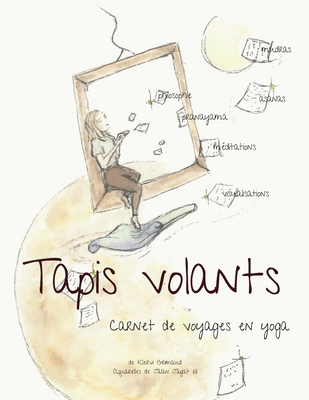 mudras
philosophie
asanas
pranayama
méditations
visualisations
Tapis volants
Carnet de voyages en yoga
de
Aquarelles de